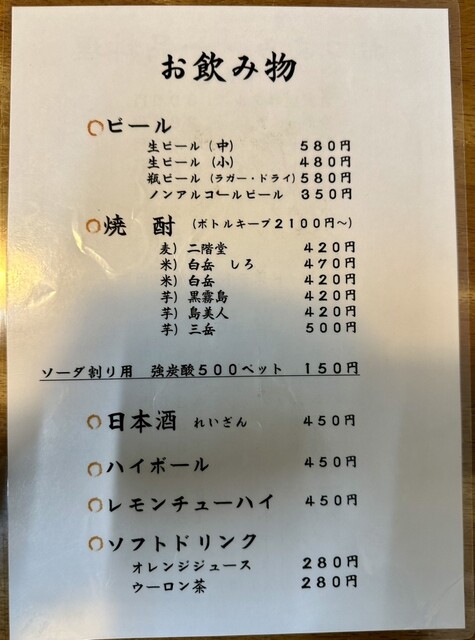 お飲み物
ビール
生ビール（中） 580円
生ビール（小） 480円
瓶ビール（ラガー・ドライ） 580円
ノンアルコールビール 350円
焼 酎 （ボトルキープ2100円～）
麦）二階堂 420円
米）白岳 しろ 470円
米）白岳 420円
芋）黒霧島 420円
芋）島美人 420円
芋）三岳 500円
ソーダ割り用 強炭酸500ペット 150円
日本酒 れいざん 450円
ハイボール 450円
レモンチューハイ 450円
ソフトドリンク
オレンジジュース 280円
ウーロン茶 280円